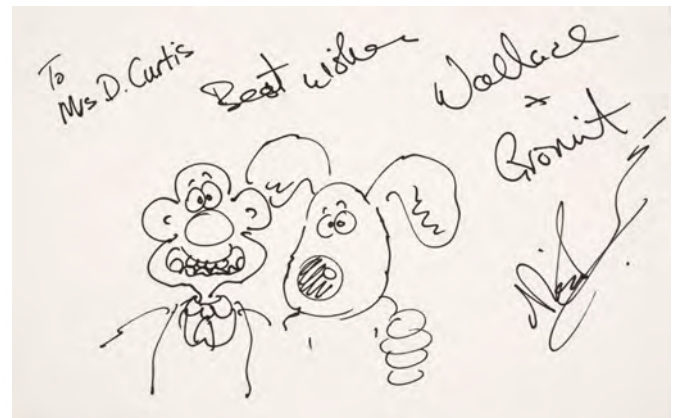 To
Ms D. Curtis
Best wishes
Wallace
x
Gromit
Nick